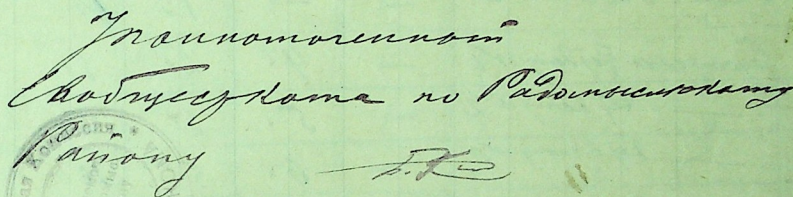 Уполномоченный
Евобщесткома по Радомысльскому
Району